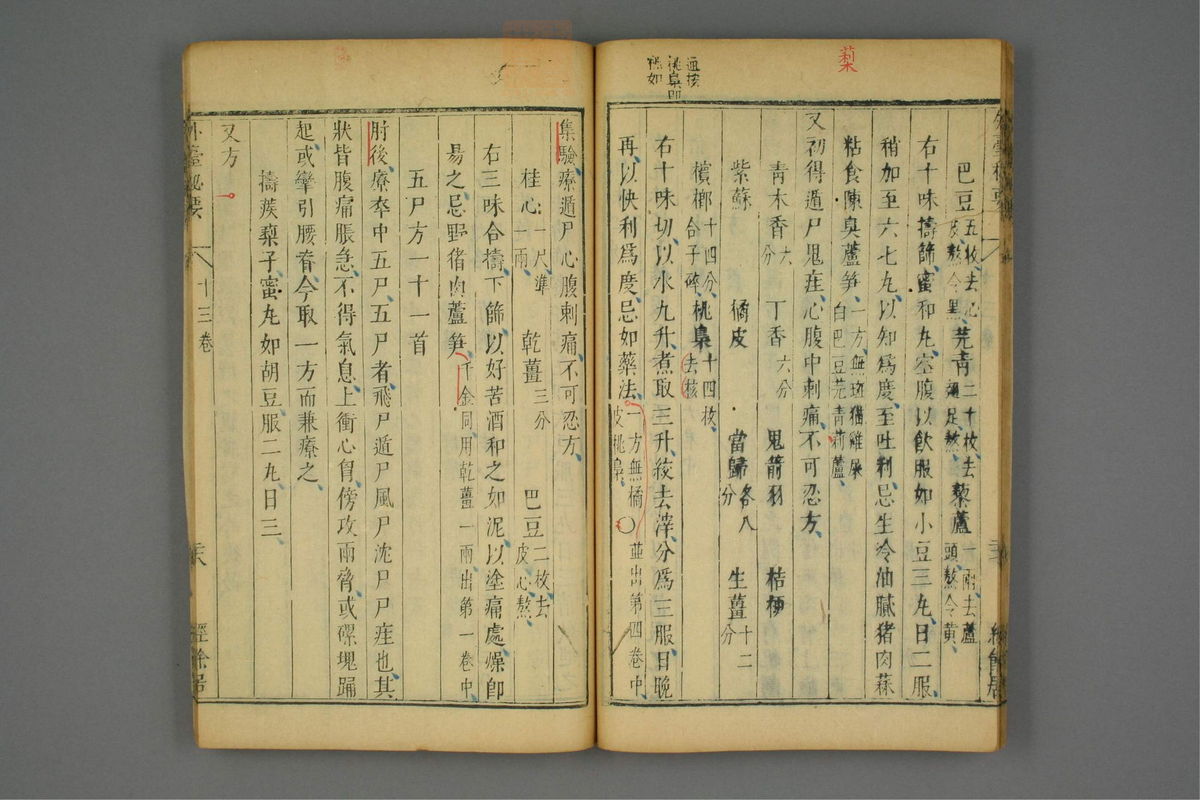 蔾
通按
桃梟即
桃如
外臺秘要
巴豆五枚去心皮熬令黑芫青二十枚去翅足熬藜蘆一兩去蘆頭熬令黄
右十味擣篩蜜和丸空腹以飲服如小豆三丸日二服
稍加至六七丸以知爲度至吐利忌生冷油膩猪肉蒜
粘食陳臭蘆笋一方無斑猫雞屎白巴豆芫青莉蘆
又初得遁尸鬼疰心腹中刺痛不可忍方
青木香六分 丁香六分 鬼箭羽 桔梗
紫蘇 橘皮 當歸各八分 生薑十二分
檳榔十四分合子碎桃梟十四枚去核
右十味切以水九升煮取三升絞去滓分爲三服日晚
再以快利爲度忌如藥法一方無橘皮桃梟〇並出第四卷中
集驗療遁尸心腹刺痛不可忍方
桂心一尺準一兩 乾薑三分 巴豆二枚去皮心熬
右三味合擣下篩以好苦酒和之如泥以塗痛處燥即
易之忌野猪肉蘆笋千金同用乾薑一兩出第一卷中
五尸方一十一首
肘後療卒中五尸五尸者飛尸遁尸風尸沈尸尸疰也其
狀皆腹痛脹急不得氣息上衝心胷傍攻兩脅或磥塊踊
起或攣引腰脊今取一方而兼療之
擣蒺蔾子蜜丸如胡豆服二丸日三
又方
外臺秘要 十三卷 經餘居